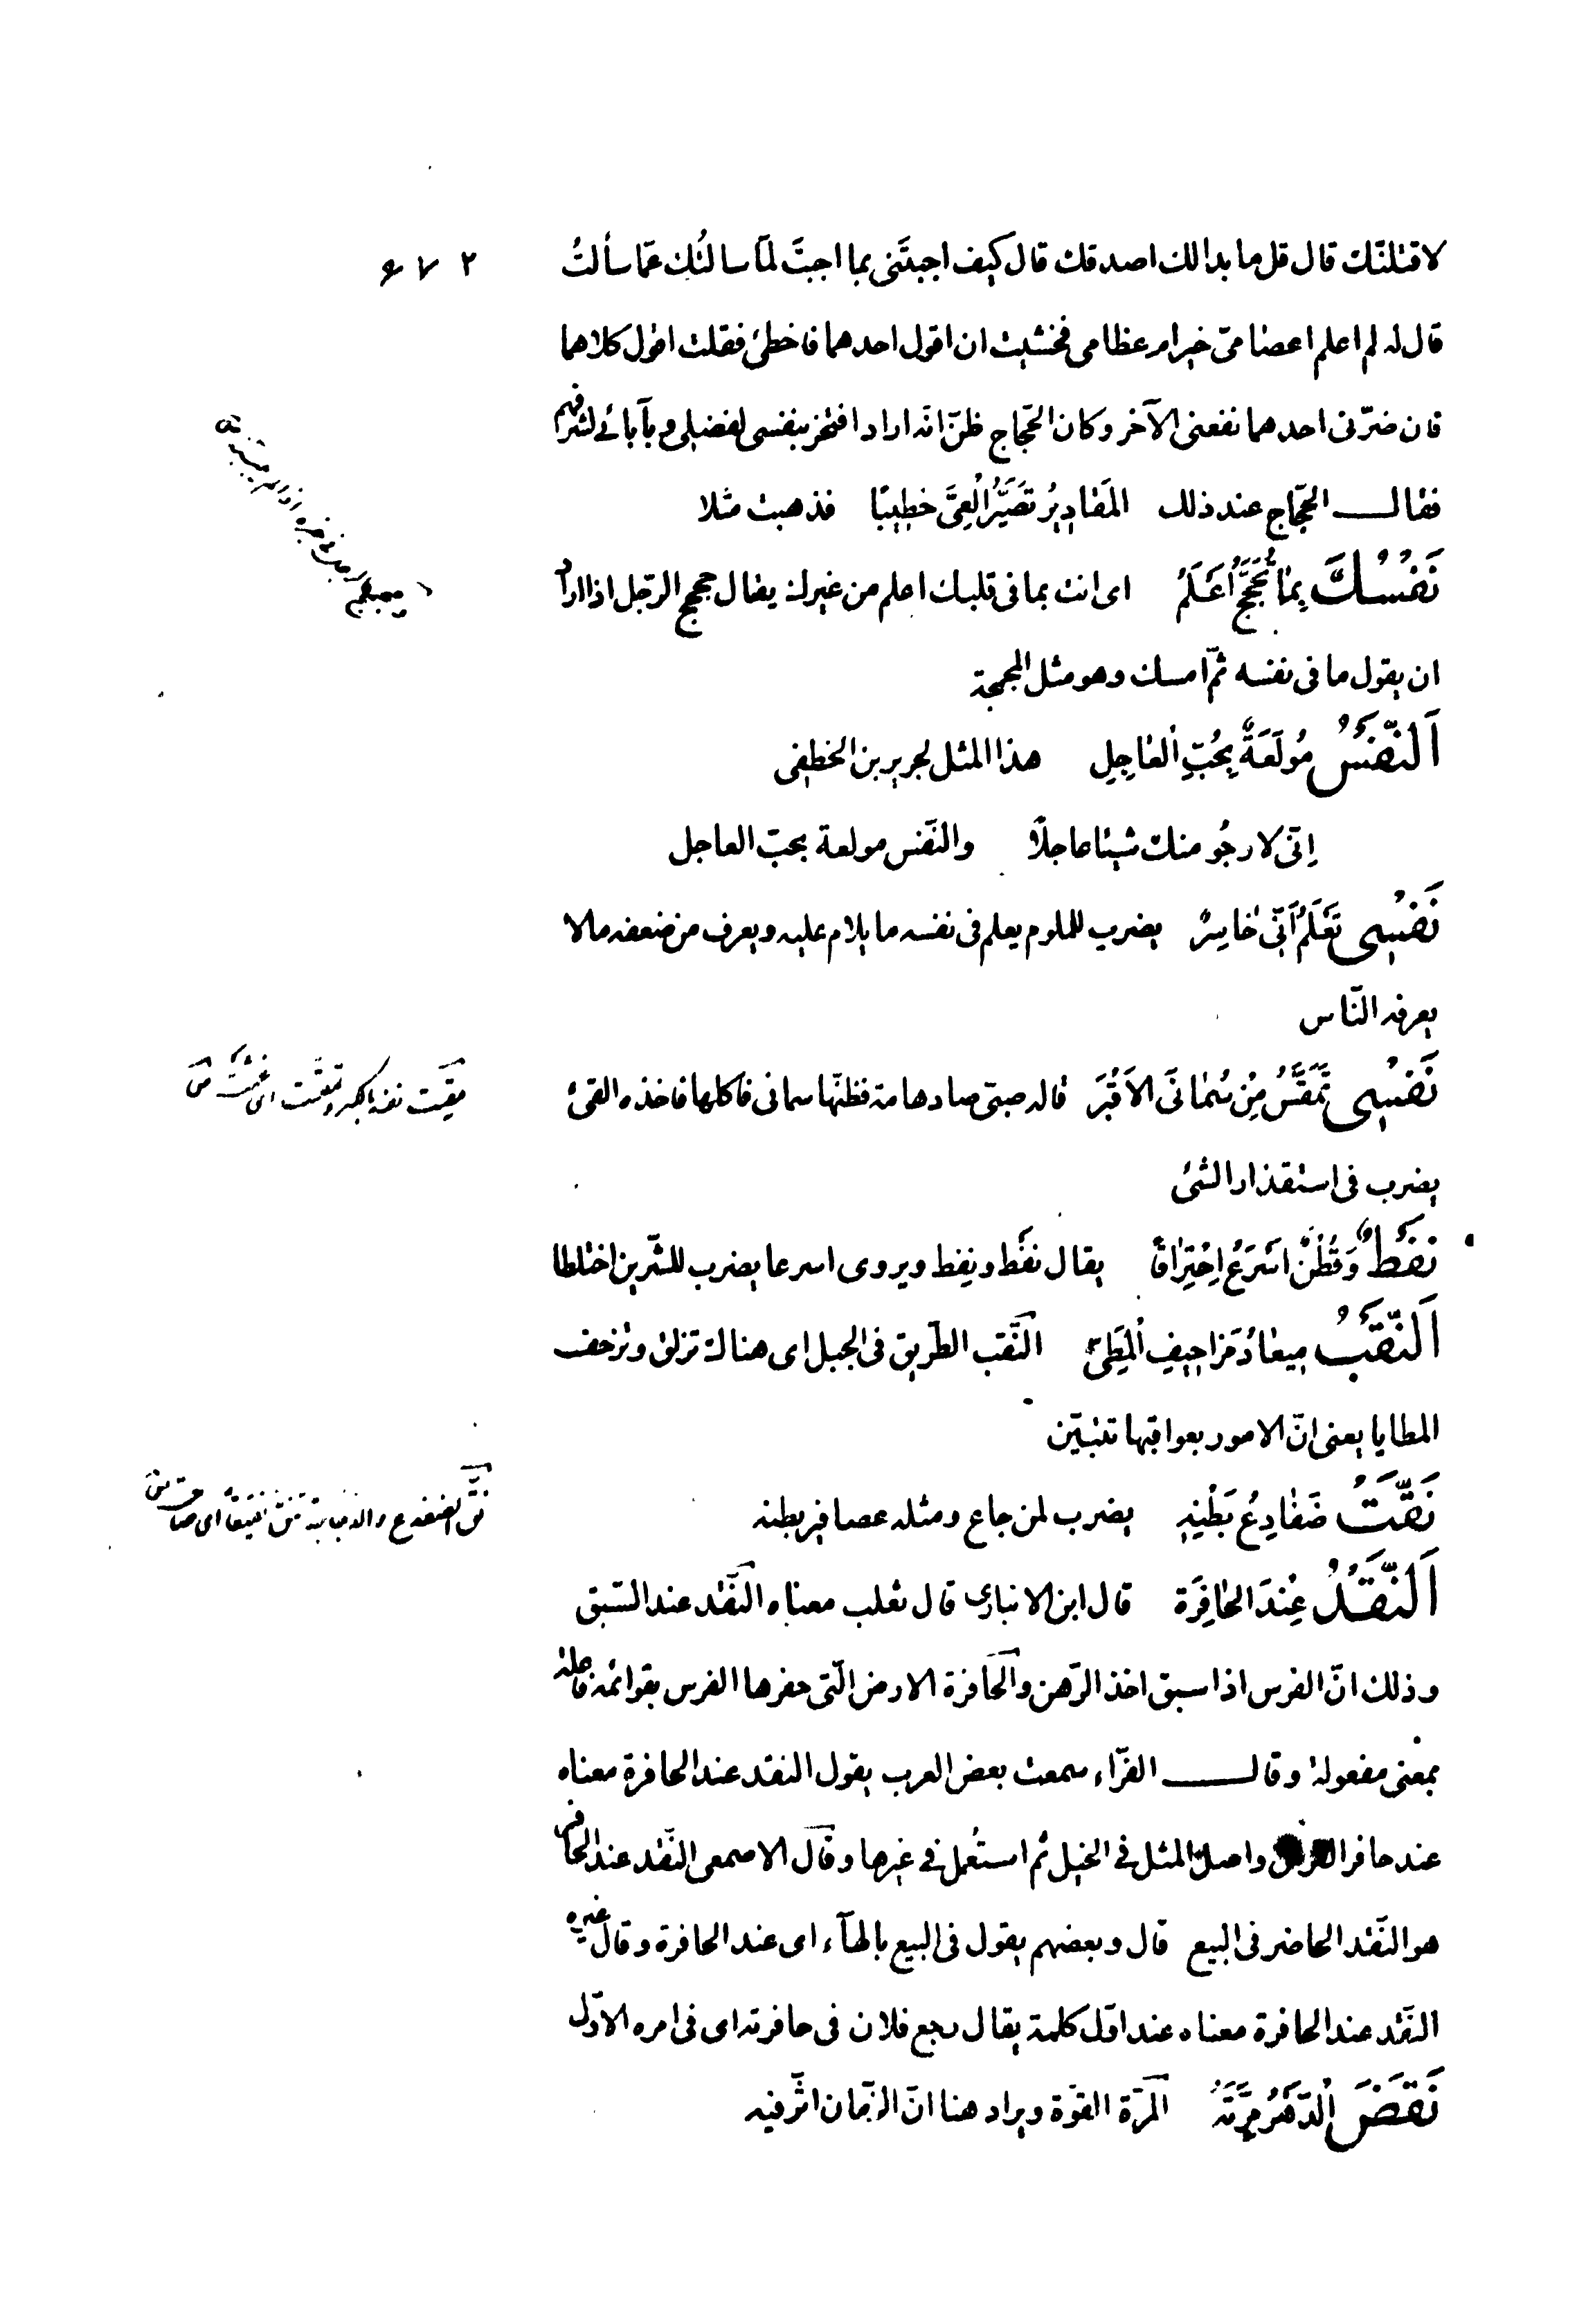 لاقتلنّك قال قل ما بدا لك اصدقك قال كيف اجبتَنى بما اجبتَ لمّا سالتُك عمّا سألتُ
قال له لم اعلم اعصامىّ خير ام عظامى فخشيت ان اقول احدهما فاخطئ فقلت اقول كلاهما
فان ضرّنى احدهما نفعنى الآخر وكان الحجّاج ظنّ انّه اراد افتخر بنفسى لفضيلى وبآبائى لشرفهم
فقال الحجّاج عند ذلك المَقادِيرُ تُصَيِّرُ الْعِىَّ خطِيبًا فذهبت مثلا
نَفْسُكَ بِمٰا تُحَجْحِجُ اَعْلَمُ اى انت بما فى قلبك اعلم من غيرك يقال حجحج الرّجل اذا اراد
ان يقول ما فى نفسه ثمّ امسك وهو مثل المجمجة
اَلنَّفْسُ مُولَعَةٌ بِحُبِّ العٰاجِلِ هذا المثل لجرير بن الخطفى
اِنّى لارجُو منك شيئا عاجلًا والنّفس مولعة بحبّ العاجل
نَفْسِى تَعْلَمُ اَنّى خٰاسِرٌ يضرب للملوم يعلم فى نفسه ما يلام عليه ويعرف من ضعفه مالا
يعرفه النّاس
نَفْسِى تَمْقُسُ مِنْ سُمٰانَى الاَقْبُرَ قاله صبىّ صاد هامة فظنّها سمانى فاكلها فاخذه القئ
يضرب فى استقذار الشئ
نَفْطٌ وَقُطْنٌ اَسْرَعُ اِحْتِرٰاقًا يقال نَفط ونِفط ويروى اسرعا يضرب للشّرين اختلطا
اَلنَّقْبُ مِيعٰادُ مَزاحِيفِ المَطِىّ النَّقب الطّريق فى الجبل اى هناك تزلق وتزحف
المطايا يعنى انّ الامور بعواقبها تتبيّن
نَقَّتْ ضَفٰادِعُ بَطْنِهِ يضرب لمن جاع ومثله عصافير بطنه
نقّ الضفدع والدجاجة تنق نقيقاً اى صاحت
اَلنَّقْدُ عِنْدَ الحٰافِرَة قال ابن الانبارى قال ثعلب معناه النَّقد عند السّبق
وذلك انّ الفرس اذا سبق اخذ الرّهن والحَافرة الارض الّتى حفرها الفرس بقوائمه فاعلة
بمعنى مفعولة وقال الفرّاء سمعت بعض العرب يقول النقد عند الحافرة معناه
عند حافر الفرس واصل المثل فى الخيل ثم استُعمل فى غيرها وقال الاصمعى النَّقد عند الحافر
هو النّقد الحاضر فى البيع قال وبعضهم يقول فى البيع بالهآء اى عند الحافرة وقال غيره
النّقد عند الحافرة معناه عند اوّل كلمة يقال رجع فلان فى حافرته اى فى امره الاوّل
نَقَضَ الدَّهْرُ مِرَّتَهُ المرّة القوّة ويراد هنا انّ الزّمان اثّر فيه